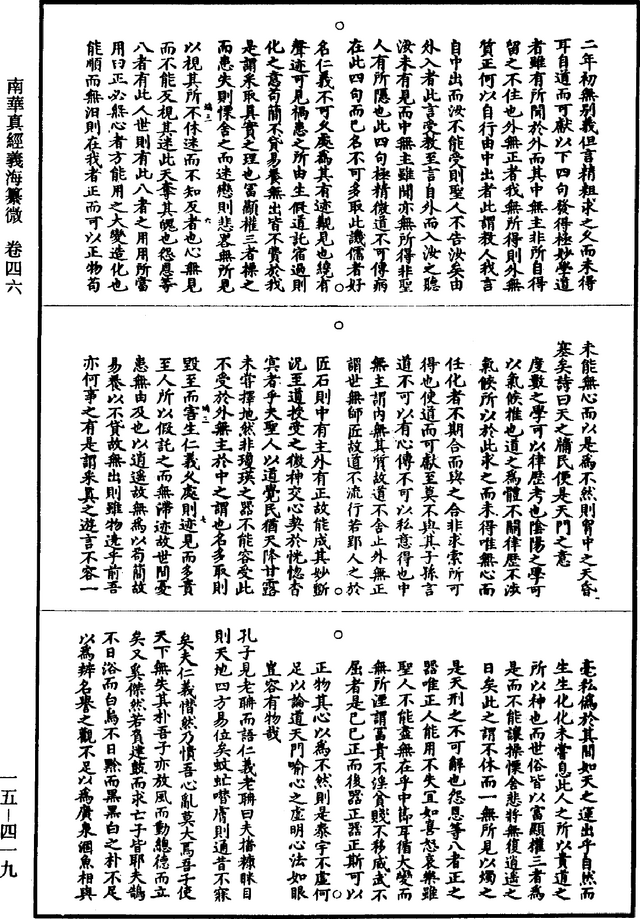 南華真經義海纂微 卷四六
一五—四一九
二年初無別義但言精粗求之久而未得
耳自道而可獻以下四句發得極妙學道
者雖有所聞於外而其中無主非所自得
留之不住也外無正者我無所得則外無
質正何以自行由中出者此謂教人我言
自中出而汝不能受則聖人不告汝矣由
外入者此言受教至言自外而入汝之聽
汝未有見而中無主雖聞亦無所得非聖
人有所隱也此四句極精微道不可傳病
在此四句而已名不可多取此譏儒者好
名仁義不可久處為其有迹觀見也纔有
聲迹可見禍患之所由生假道託宿過則
化之意苟簡不貸易養無出皆不費於我
是謂采取真實之理也富顯權三者操之
而患失則慄舍之而迷戀則悲畧無所見
以視其所不休迷而不知反者也心無見
而不能反視其迷此天奪其魄也怨恩等
八者有此人世則有此八者之用用所當
用曰正必無心者方能用之大變造化也
能順而無汩則在我者正而可以正物苟
未能無心而以是為不然則胷中之天昏
塞矣詩曰天之牖民便是天門之意
度數之學可以律歷考也陰陽之學可
以氣候推也道之為體不關律歷不涉
氣候所以於此求之而未得唯無心而
任化者不期合而與之合非求索所可
得也使道而可獻至莫不與其子孫言
道不可以有心傳不可以私意得也中
無主謂內無其質故道不舍止外無正
謂世無師匠故道不流行若郢人之於
匠石則中有主外有正故能成其妙斵
況至道授受之微神交心契於恍惚杳
冥者乎夫聖人以道覺民猶天降甘露
未嘗擇地然非瓊瑛之器不能容受此
不受於外無主於中之謂也名多取則
毀至而害生仁義久處則迹見而多責
至人所以假託之而無滯迹故世間憂
患無由及也以逍遙故無為以苟簡故
易養以不貸故無出則雖物迭乎前吾
亦何事之有是謂采真之遊言不容一
毫私僞於其間如天之運出乎自然而
生生化化未嘗息此人之所以貴道之
所以神也而世俗皆以富顯權三者為
是而不能讓操慄舍悲將無復逍遙之
日矣此之謂不休而一無所見以燭之
是天刑之不可解也怨恩等八者正之
器唯正人能用不失宜如喜怒哀樂雖
聖人不能盡無在乎中節耳循大變而
無所湮謂富貴不淫貧賤不移威武不
屈者是已己正而後器正器正斯可以
正物其心以為不然則是泰宇不虛何
足以論道天門喻心之虛明心法如眼
豈容有物哉
孔子見老聃而語仁義老聃曰夫播糠眯目
則天地四方易位矣蚊虻噆膚則通昔不寐
矣夫仁義憯然乃憤吾心亂莫大焉吾子使
天下無失其朴吾子亦放風而動總德而立
矣又奚傑然若負建鼓而求亡子者耶夫鵠
不日浴而白烏不日黔而黑黑白之朴不足
以為辨名譽之觀不足以為廣泉涸魚相與